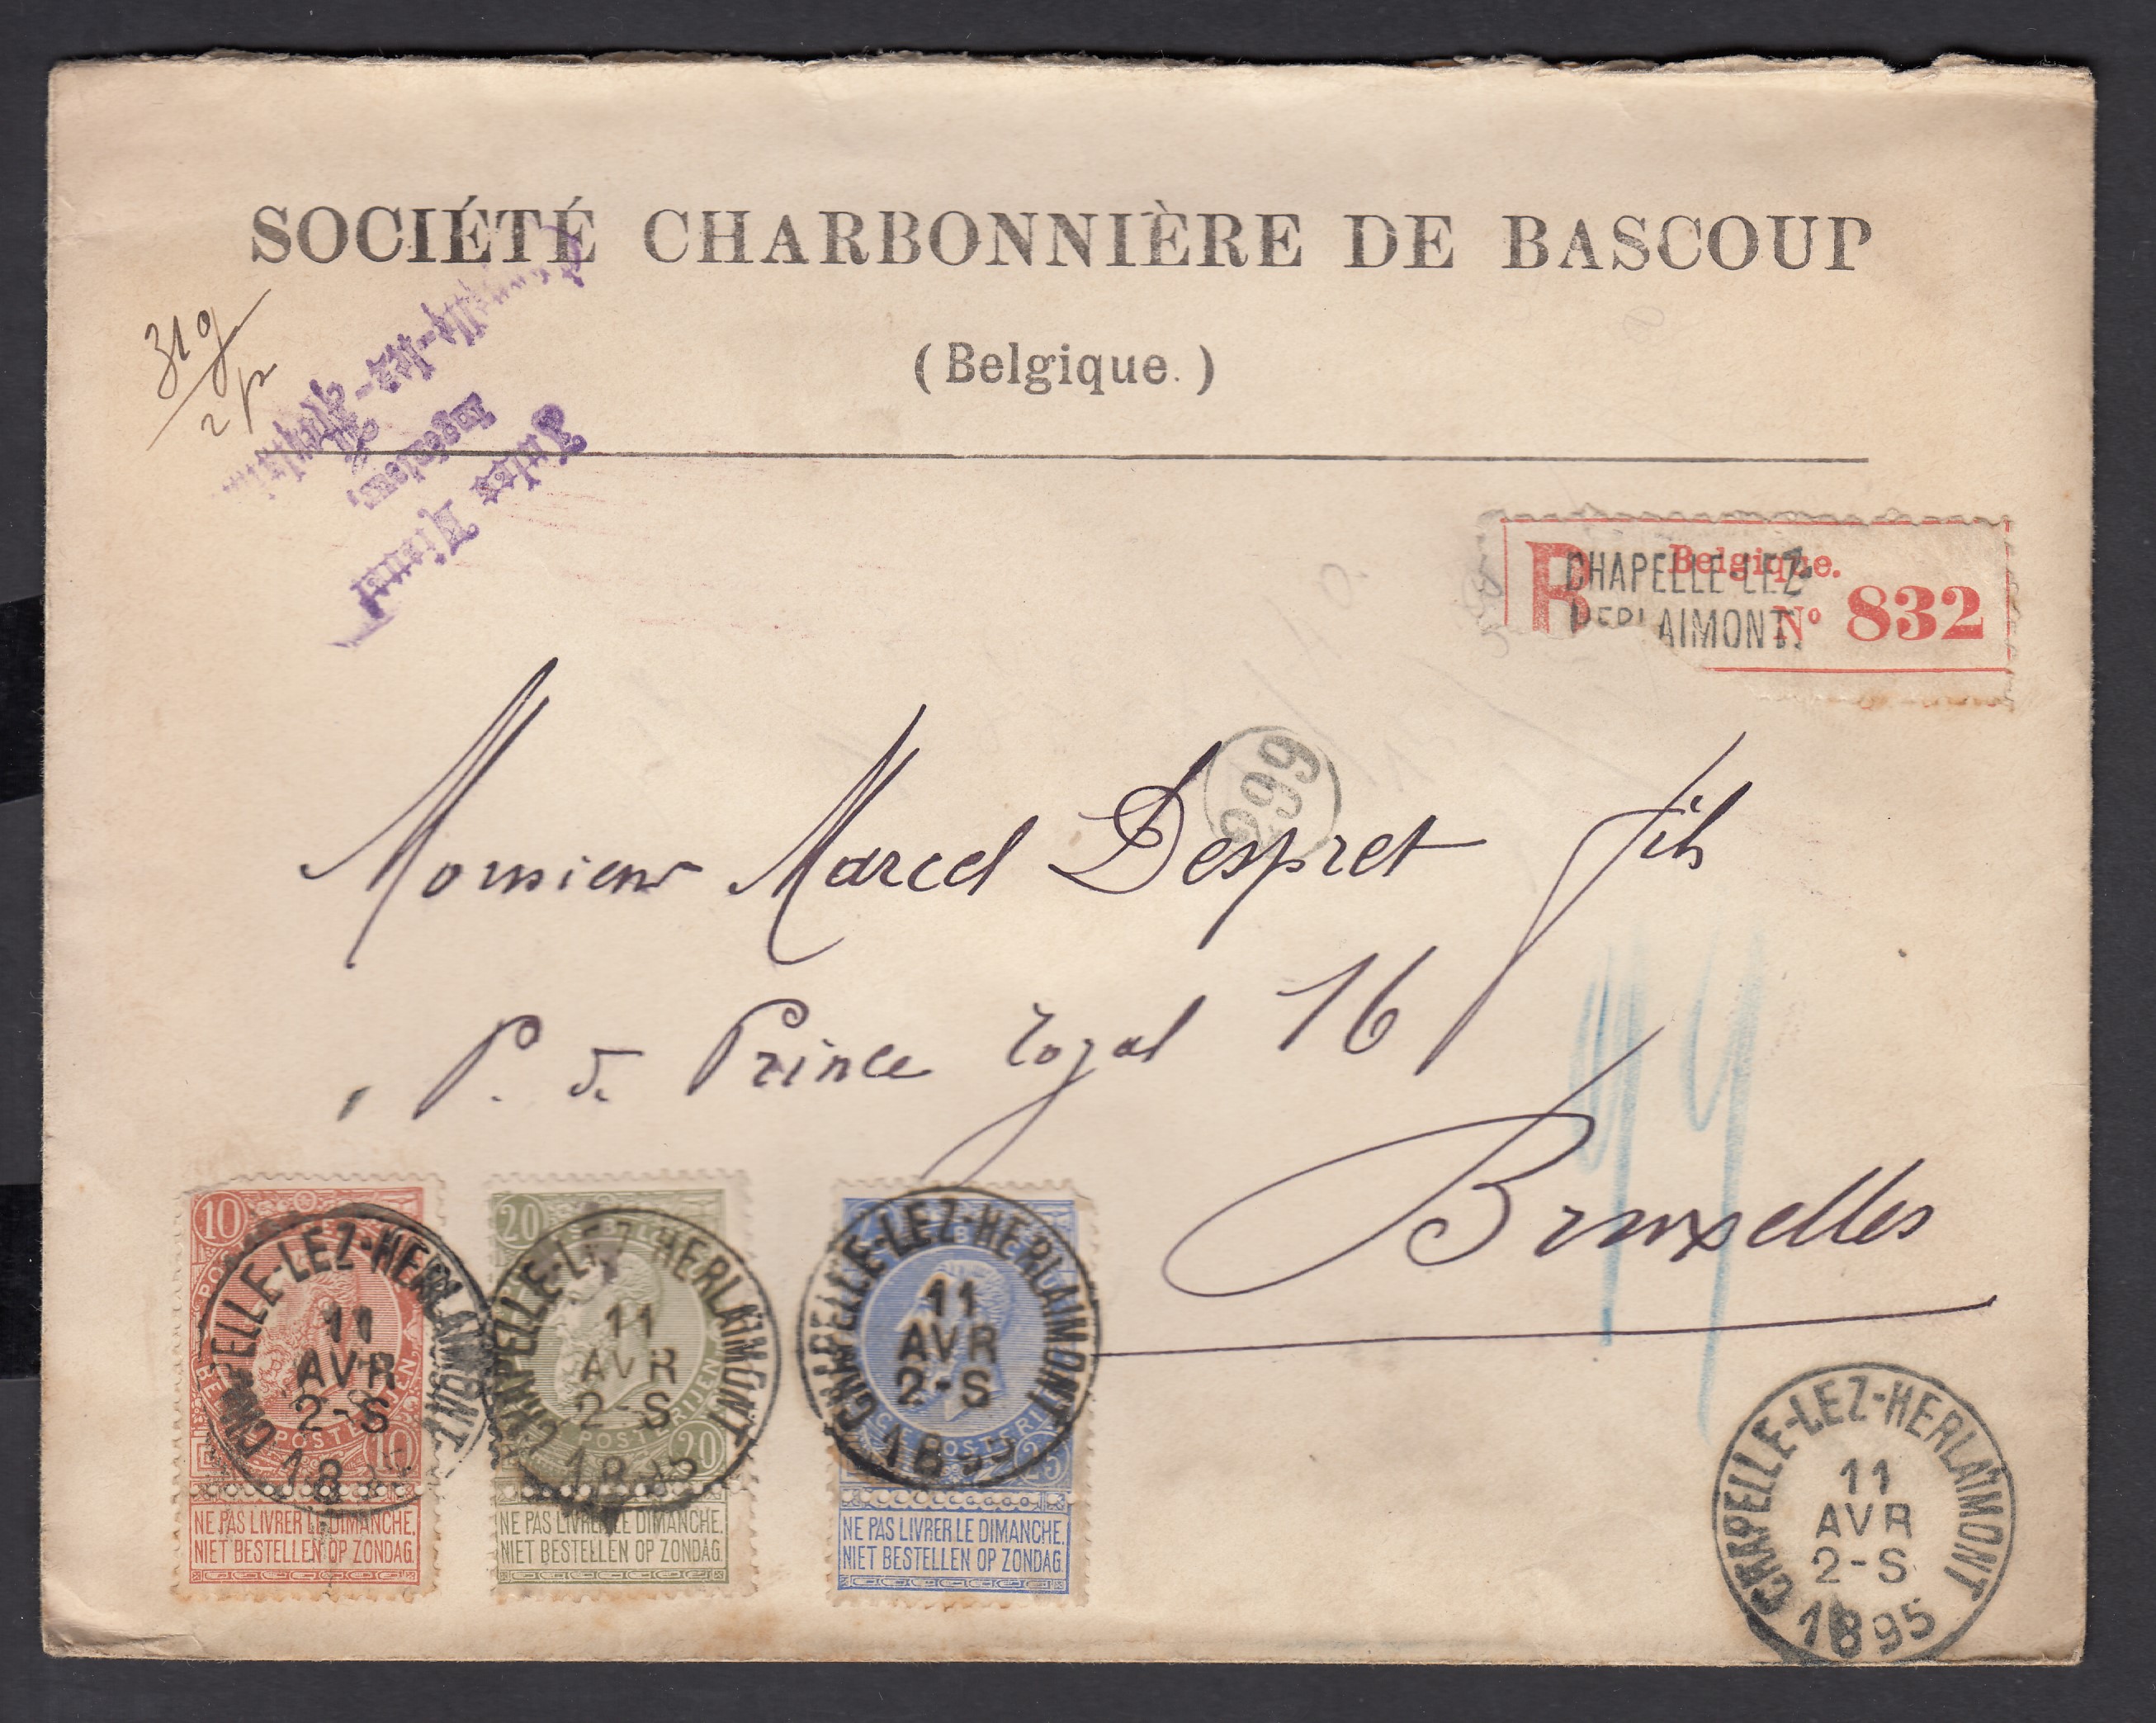 SOCIÉTÉ CHARBONNIÈRE DE BASCOUP
(Belgique.)
31 g
2 p
Jules
Ingénieur,
-lez-
R Belgique.
CHAPELLE-LEZ-
HERLAIMONT.
Nº 832
669
Monsieur Marcel Despret fils
P. d. Prince royal 16
Bruxelles
10
CHAPELLE-LEZ-HERLAIMONT
11
AVR
2-S
18
POSTERIJEN
10
NE PAS LIVRER LE DIMANCHE.
NIET BESTELLEN OP ZONDAG.
20
CHAPELLE-LEZ-HERLAIMONT
11
AVR
2-S
18
POSTERIJEN
20
NE PAS LIVRER LE DIMANCHE.
NIET BESTELLEN OP ZONDAG.
CHAPELLE-LEZ-HERLAIMONT
11
AVR
2-S
1895
25
NE PAS LIVRER LE DIMANCHE.
NIET BESTELLEN OP ZONDAG.
CHAPELLE-LEZ-HERLAIMONT
11
AVR
2-S
1895